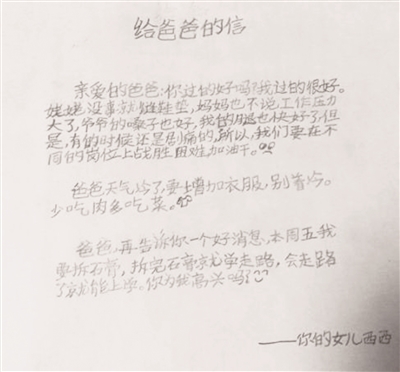 给爸爸的信
亲爱的爸爸:你过的好吗?我过的很好。
姥姥没事就缝鞋垫,妈妈也不说工作压力
大了,爷爷的嗓子也好,我的腿也快好了,但
是,有的时候还是剧痛的,所以,我们要在不
同的岗位上战胜困难,加油干。
爸爸天气冷了,要增加衣服,别着冷。
少吃肉多吃菜。
爸爸,再告诉你一个好消息,本周五我
要拆石膏,拆完石膏就学走路,会走路
了就能上学。你为我高兴吗?
——你的女儿西西